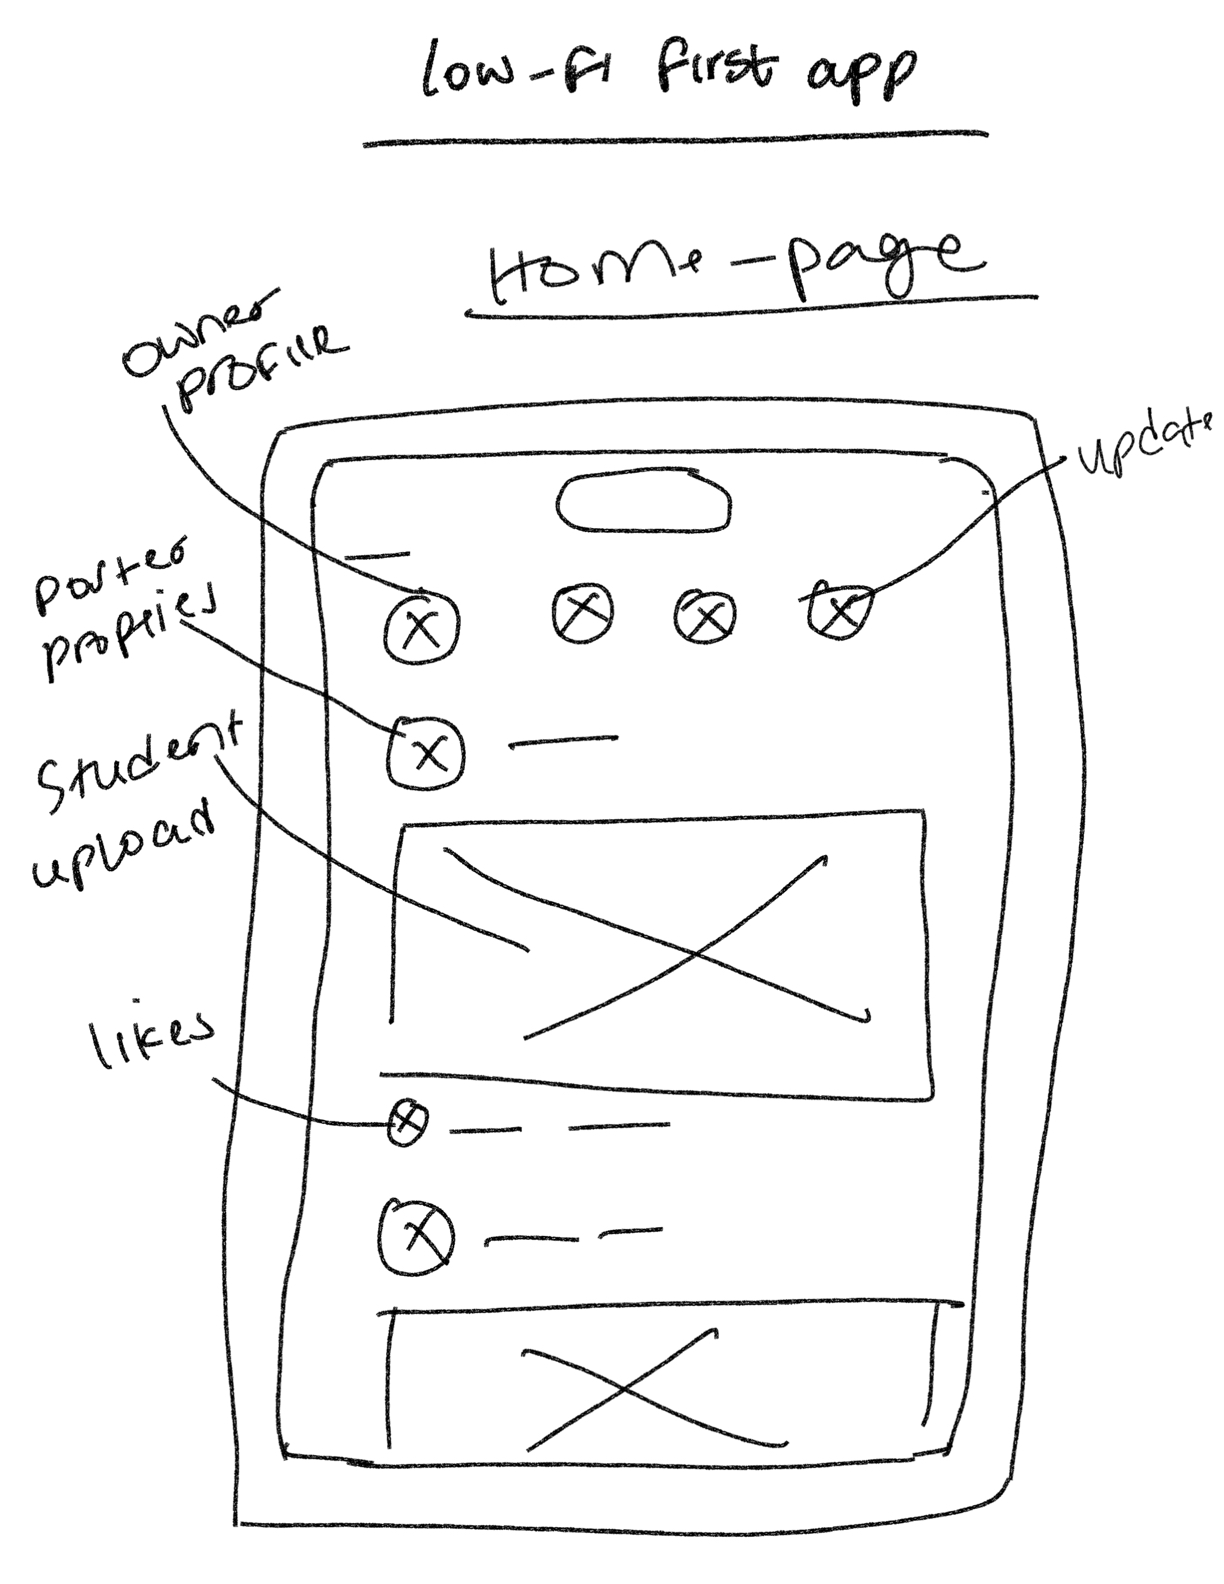 low-fi first app
Home-page
owner
profile
update
porter
Student
upload
likes